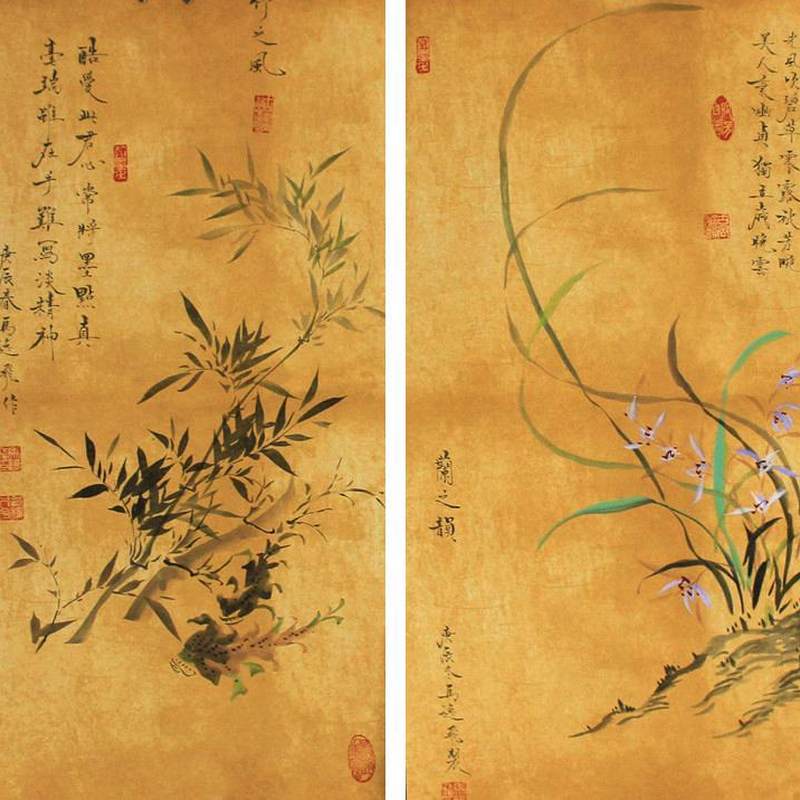 竹之風
酷愛此君心常將墨點真
毫端雖在手難寫淡精神
庚辰春馬飛作
光風吹碧草零露秋芳
美人意幽貞獨立歲晚雲
蘭之韻
庚辰冬馬飛製